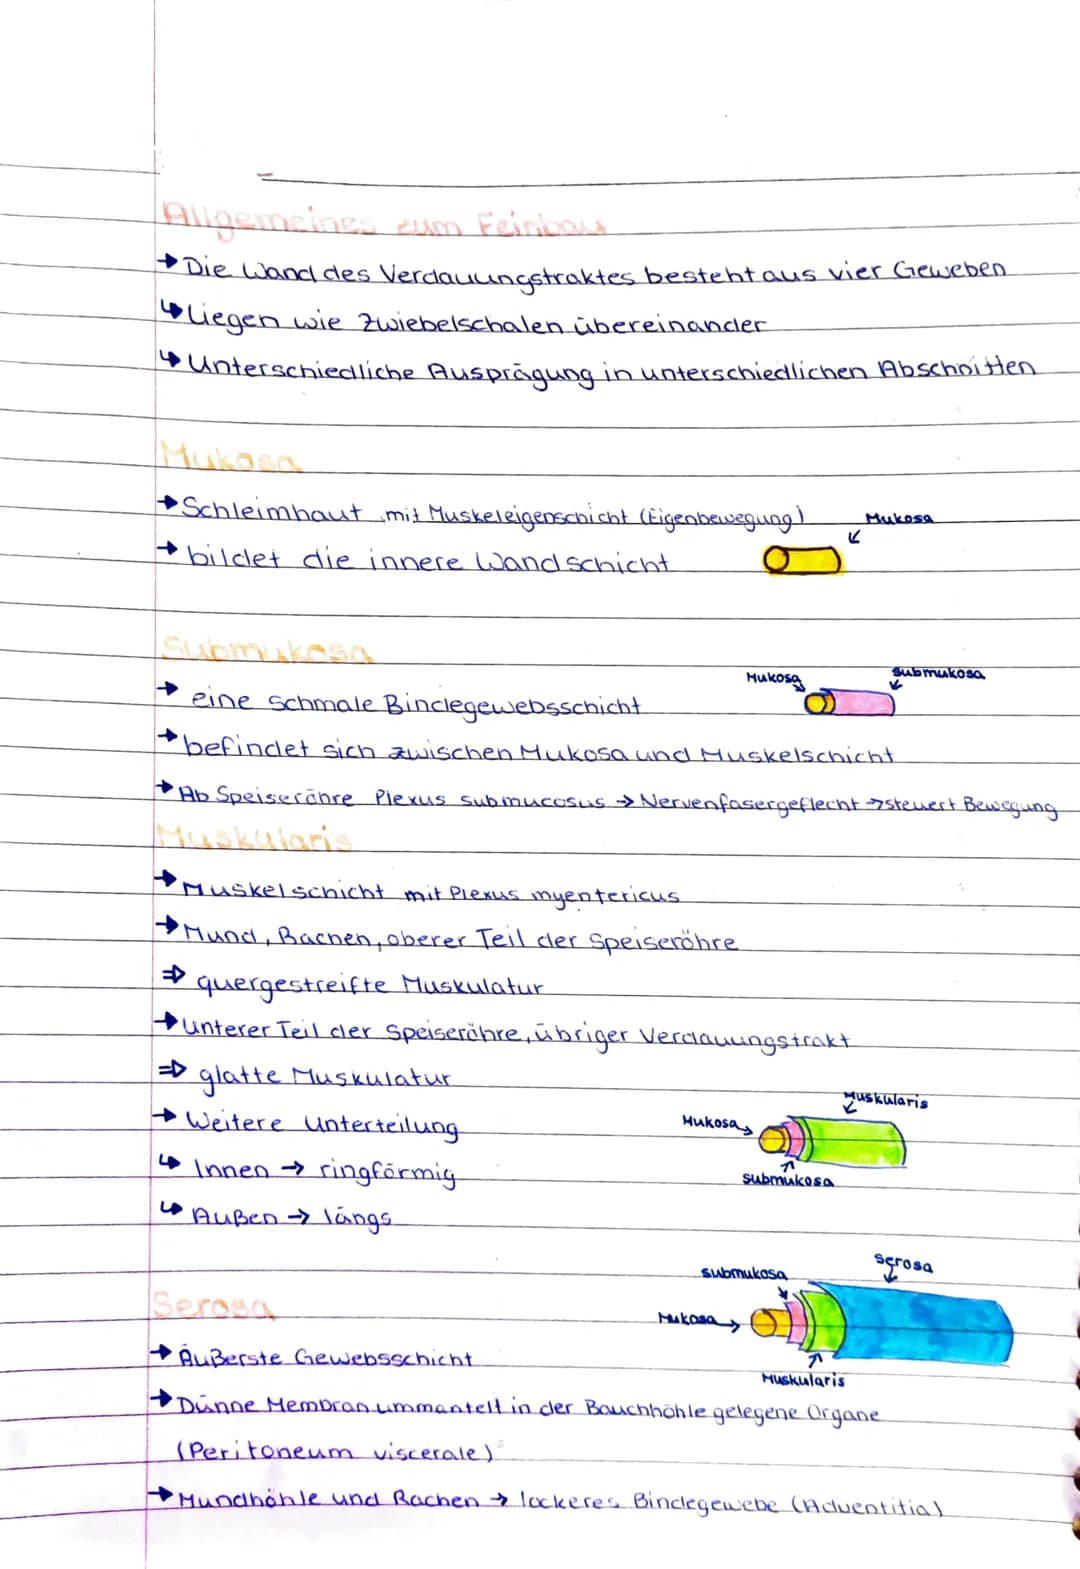 Allgemeines zum Feinbau
→ Die Wand des Verdauungstraktes besteht aus vier Geweben
↳ Liegen wie Zwiebelschalen übereinander
↳ Unterschiedliche Ausprägung in unterschiedlichen Abschnitten
Mukosa
→ Schleimhaut mit Muskeleigenschicht (Eigenbewegung)
Mukosa
→ bildet die innere Wandschicht
Submukosa
Mukosa
submukosa
→ eine schmale Bindegewebsschicht
→ befindet sich zwischen Mukosa und Muskelschicht
→ Ab Speiseröhre Plexus submucosus → Nervenfasergeflecht → steuert Bewegung
Muskularis
→ Muskelschicht mit Plexus myentericus
→ Mund, Rachen, oberer Teil der Speiseröhre
⇒ quergestreifte Muskulatur
→ unterer Teil der Speiseröhre, übriger Verdauungstrakt
⇒ glatte Muskulatur
Muskularis
→ Weitere Unterteilung
Mukosa
↳ Innen → ringförmig
submukosa
↳ Außen → längs
Serosa
submukosa
Serosa
Mukosa
→ Äußerste Gewebsschicht
Muskularis
→ Dünne Membran ummantelt in der Bauchhöhle gelegene Organe
(Peritoneum viscerale)
→ Mundhöhle und Rachen → lockeres Bindegewebe (Adventitia)